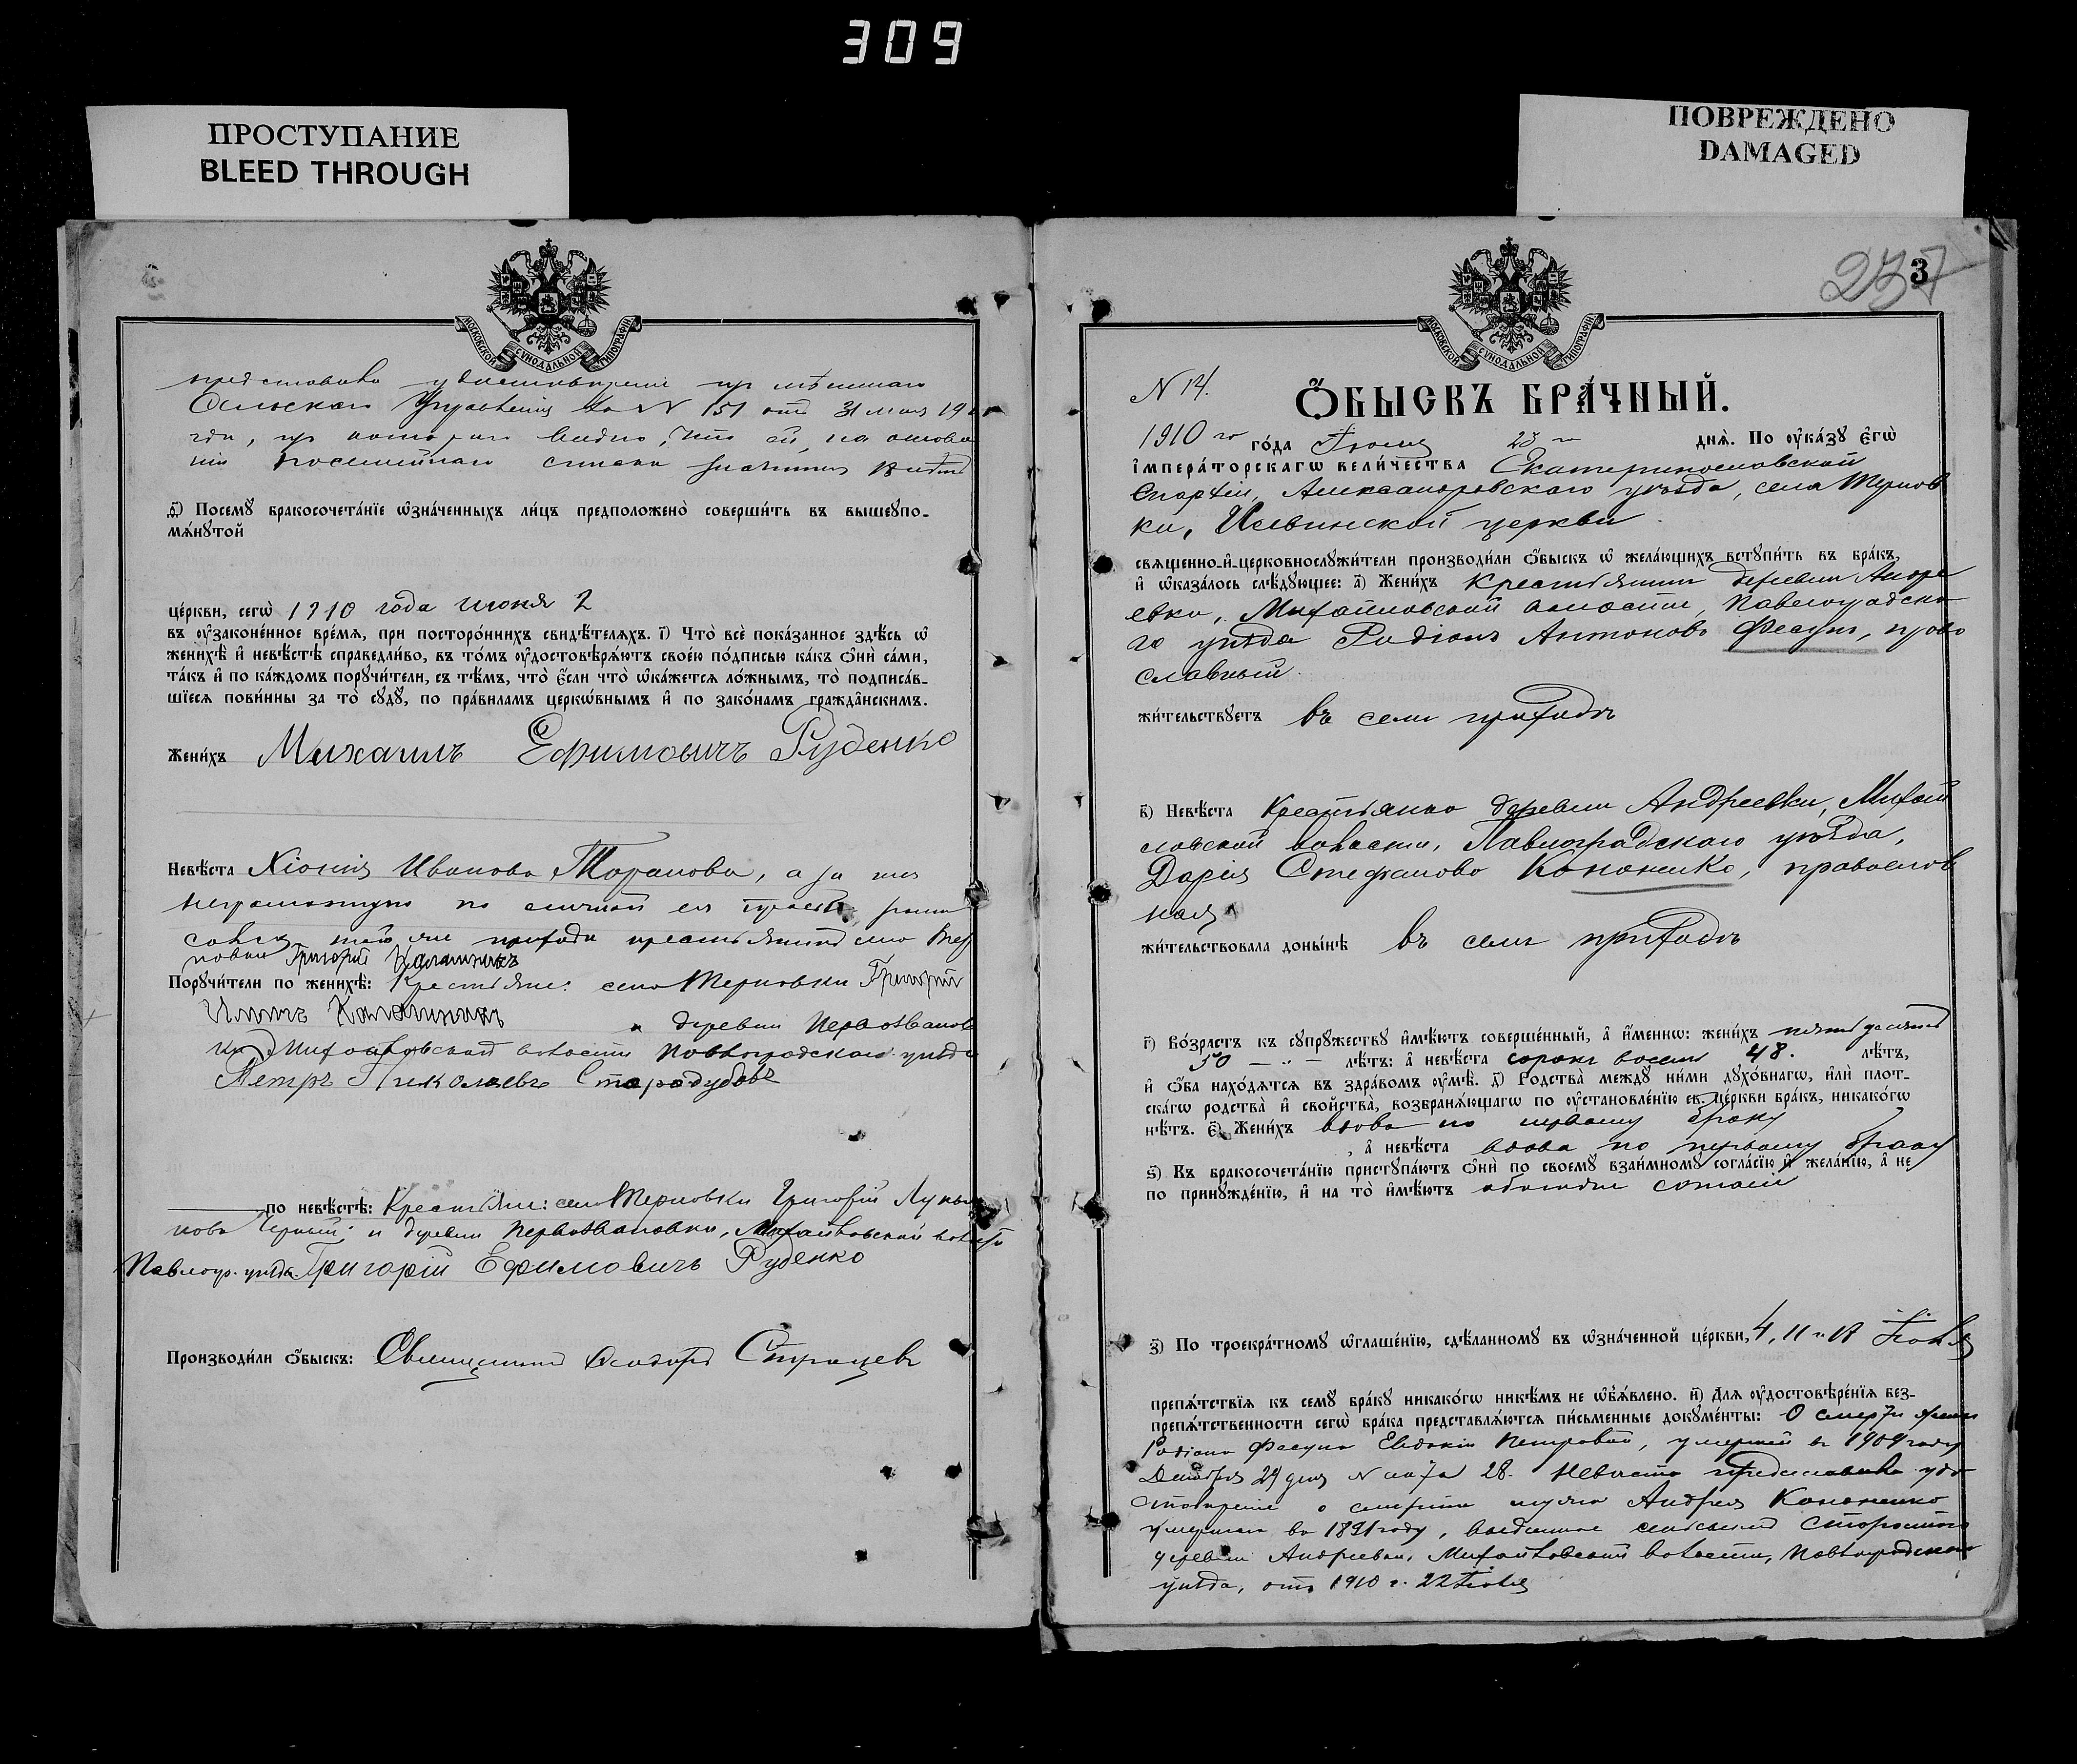 309
ПРОСТУПАНИЕ
BLEED THROUGH
ПОВРЕЖДЕНО
DAMAGED
МОСКОВСКОЙ СѴНОДАЛЬНОЙ ТИПОГРАФІИ
Сельскаго Управленія за N 151 отъ 31 мая 19
года, изъ котораго видно, что ей, на основа
ніи посемейнаго списка
д҃) Посемꙋ̀ бракосочета́нїе ѡ҆зна́ченныхъ ли́цъ предположено̀ соверши́ть въ вышеꙋпо-
мѧ́нꙋтой
це́ркви, сегѡ̀ 1910 года июня 2
въ ᲂу҆зако́не́нное вре́мѧ, при посторо́ннихъ свидѣ́телѧхъ. і҃) Что̀ всѐ пока́занное здѣ́сь ѡ҆
женихѣ̀ и҆ невѣ́стѣ справедли́во, въ то́мъ ᲂу҆достовѣрѧ́ютъ свое́ю по́дписью ка́къ ѻ҆нѝ са́ми,
та́къ и҆ по ка́ждомъ порꙋчи́тели, съ тѣ́мъ, что̀ є҆́сли что̀ ѡ҆ка́жется ло́жнымъ, то̀ подписа́в-
шїесѧ пови́нны за то̀ сꙋдꙋ̀, по пра́виламъ церкѡ́внымъ и҆ по зако́намъ гражда́нскимъ.
Жени́хъ Михаилъ Ефимовичъ Руденко
Невѣ́ста Хіонія Иванова Таранова, а за нея
неграмотную по личной ея просьбѣ
той же прихода крестьянинъ села Тер
новки Григорій Калашникъ
Порꙋчи́тели по женихѣ̀: Крестьяне: села Терновки Григорій
Калашникъ и деревни Первозванов
ки Михайловской волости Павлоградскаго уѣзда
Петръ Николаевъ Стародубовъ
по невѣ́стѣ: Крестьяне: села Терновки Григорій Лукья
новъ Черный; и деревни Первозвановки, Михайловской волости
Павлогр. уѣзда Григорій Ефимовичъ Руденко
Производи́ли ѻ҆́быскъ: Священникъ Ѳеодоръ
237
3
N 14.
Ѻ҆́БЫСКЪ БРА́ЧНЫЙ.
1910 го го́да Іюня 20 го днѧ̀. По ᲂу҆ка́зꙋ є҆гѡ̀
і҆мпера́торскагѡ вели́чества Екатеринославской
Епархіи, Александровскаго уѣзда, села Тернов
ки, Ильинской церкви
свѧщенно-и҆-церковнослꙋжи́тели производи́ли ѻ҆́быскъ ѡ҆ жела́ющихъ встꙋпи́ть въ бра́къ,
и҆ ѡ҆каза́лось слѣ́дꙋющее: а҃) Жени́хъ Крестьянинъ деревни Андре
евки, Михайловской волости, Павлоградска
го уѣзда Родіонъ Антоновъ Фесунъ, право
славный.
жи́тельствꙋетъ въ семъ приходѣ
в҃) Невѣ́ста Крестьянка деревни Андреевки, Михай
ловской волости, Павлоградскаго уѣзда,
Дарія Стефанова Кононенко, православ
ная
жи́тельствовала доны́нѣ въ семъ приходѣ
г҃) Во́зрастъ къ сꙋпрꙋ́жествꙋ и҆мѣ́ютъ соверше́нный, а҆ и҆́меннѡ: жени́хъ пятьдесятъ
50 лѣ́тъ: а҆ невѣ́ста сорокъ восемь 48. лѣ́тъ,
и҆ ѻ҆́ба нахо́дѧтсѧ въ здра́вомъ ᲂу҆мѣ̀. д҃) Родства̀ междꙋ̀ ни́ми дꙋхо́внагѡ, и҆лѝ плот-
ска́гѡ родства̀ и҆ сво́йства̀, возбранѧ́ющагѡ по ᲂу҆становле́нїю св. це́ркви бра́къ, никако́гѡ
нѣ́тъ. є҃) Жени́хъ вдовъ по первому браку
, а҆ невѣ́ста вдова по первому браку
ѕ҃) Къ бракосочета́нїю пристꙋпа́ютъ ѻ҆нѝ по своемꙋ̀ взаи́мномꙋ согла́сїю и҆ жела́нїю, а҆ не
по принꙋжде́нїю, и҆ на то̀ и҆мѣ́ютъ
з҃) По троекра́тномꙋ ѡ҆глаше́нїю, сдѣ́ланномꙋ въ ѡ҆зна́ченной це́ркви, 4, 11 и
препѧ́тствїѧ къ семꙋ̀ бра́кꙋ никако́гѡ никѣ́мъ не ѡ҆б̾ѧ́влено. и҃) Длѧ ᲂу҆достовѣре́нїѧ без-
препѧ́тственности сегѡ̀ бра́ка представлѧ́ютсѧ пи́сьменные докꙋме́нты: О смерти жены
Родіона Фесуна Евдокіи Петровой, умершей въ 1909 году
Декабря 29 дня N 28. Невѣста представила удо
стовѣреніе о смерти мужа Андрея Кононенко
умершаго въ 1891 году, выданное сельскимъ Старостою
деревни Андреевки, Михайловской волости, Павлоградскаго
уѣзда, отъ 1910 г. 22 Іюня